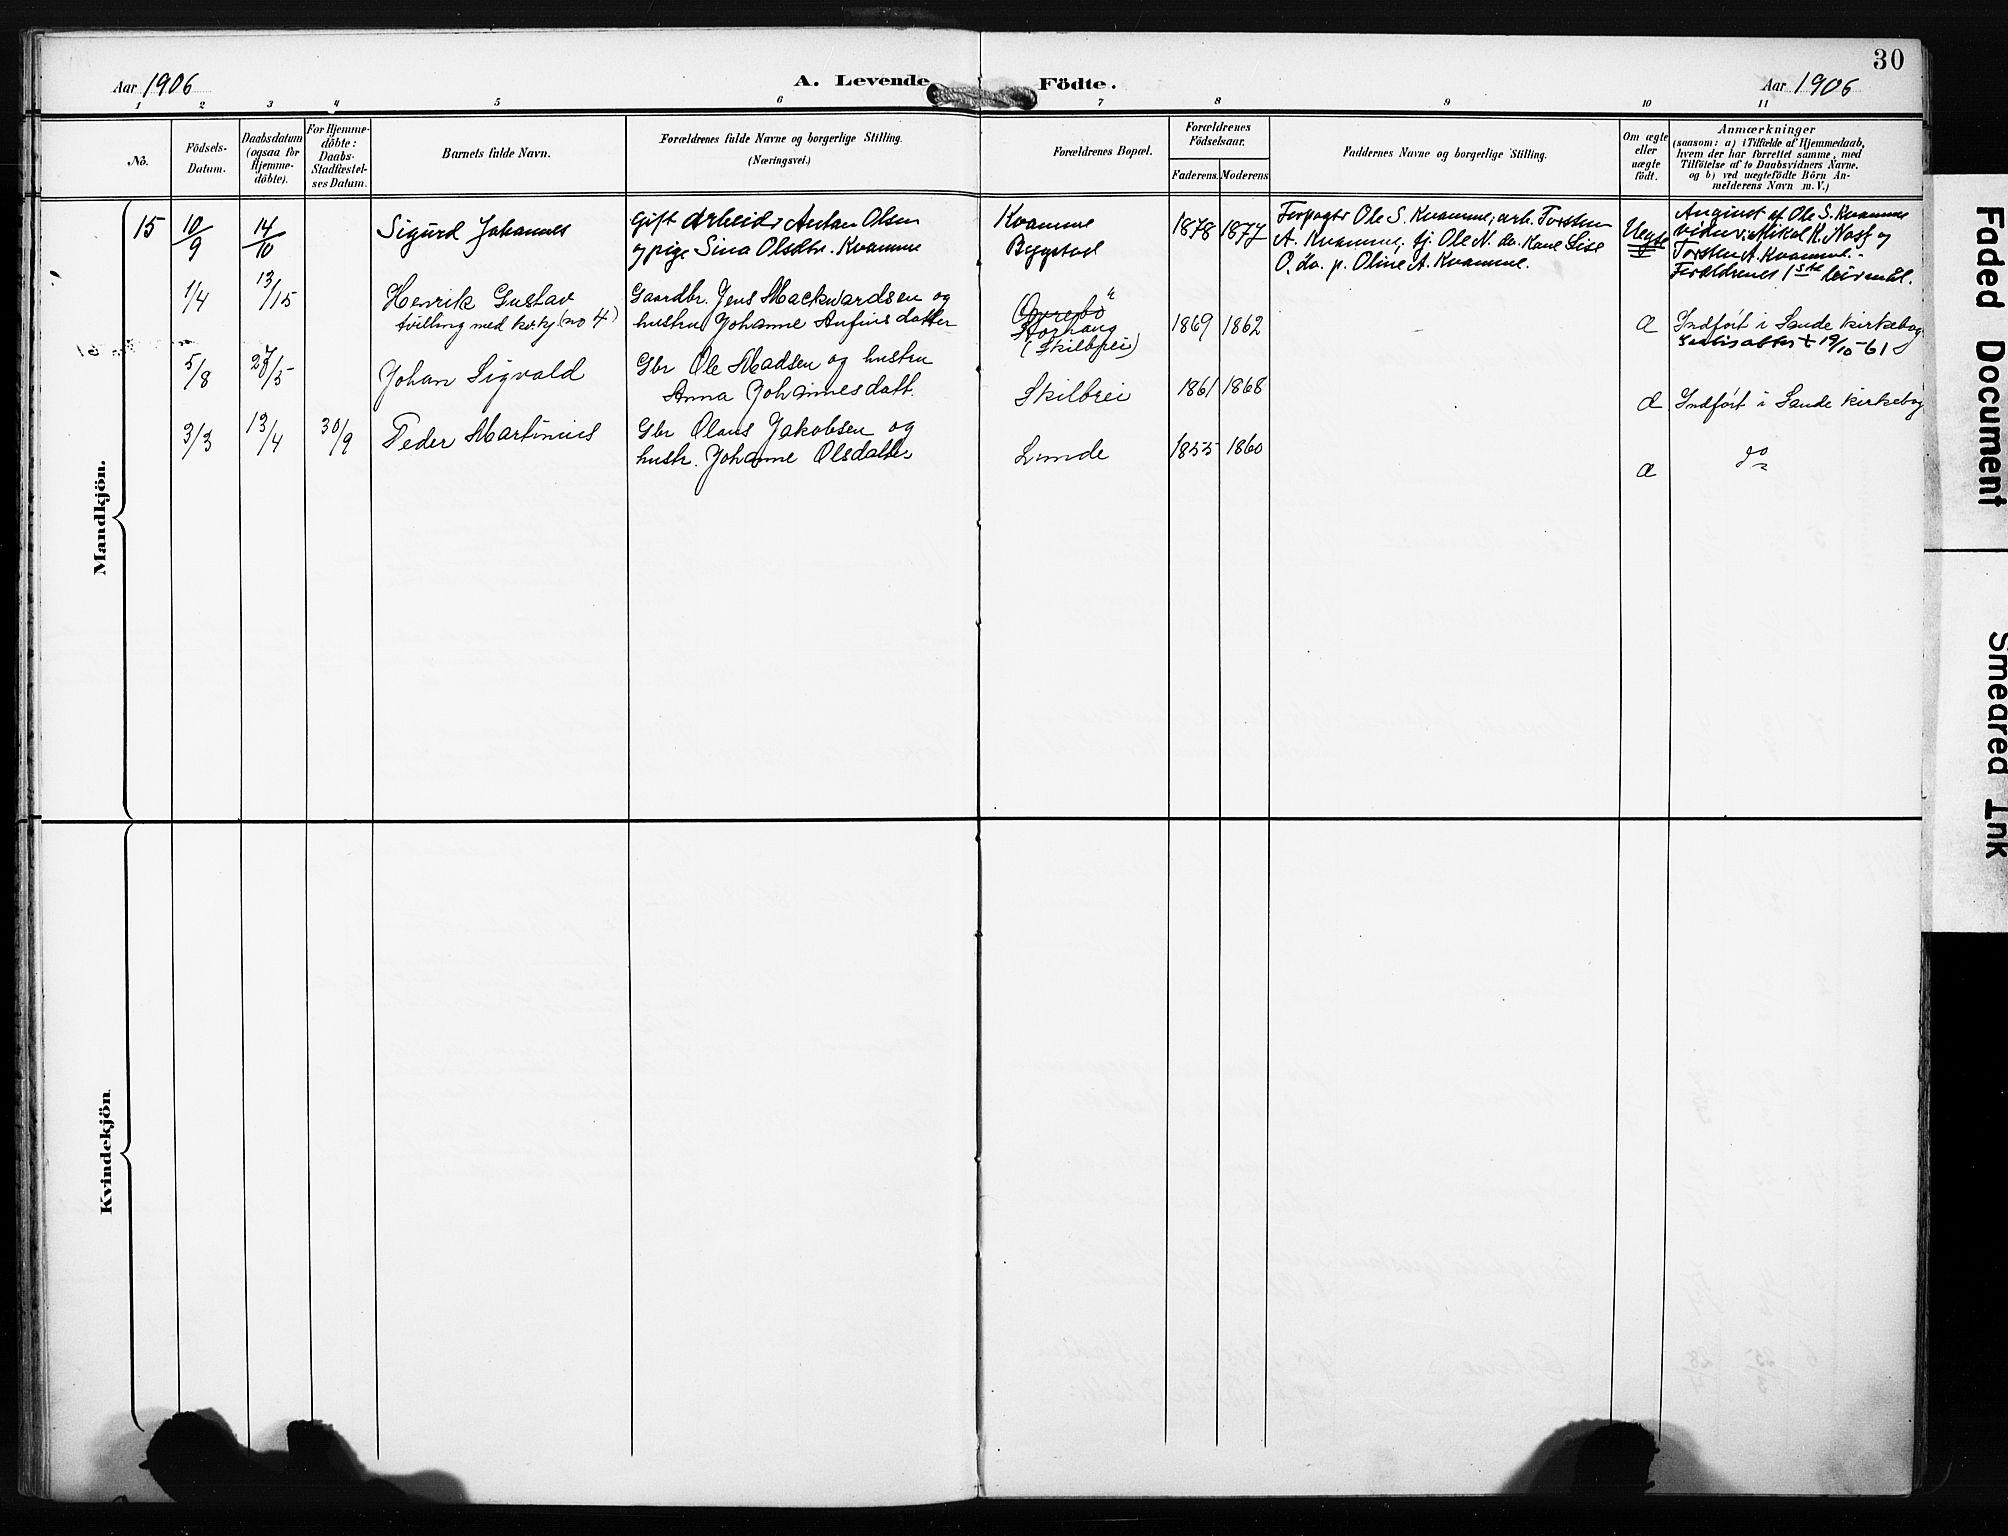 30
Aar 1906
A. Levende Födte.
Aar 1906
1 2 3 4 5 6 7 8 9 10 11
No.
Födsels-
Datum.
Daabsdatum
(ogsaa for
Hjemme-
döbte).
For Hjemme-
döbte:
Daabs-
Stadfæstel-
ses Datum.
Barnets fulde Navn.
Forældrenes fulde Navne og borgerlige Stilling.
(Næringsvei.)
Forældrenes Bopæl.
Forældrenes
Födselsaar.
Faderens. Moderens
Faddernes Navne og borgerlige Stilling.
Om ægte
eller
uægte
födt.
Anmærkninger
(saasom: a) i Tilfælde af Hjemmedaab,
hvem der har forrettet samme, med
Tilföielse af to Daabsvidners Navne.
og b) ved uægtefödte Börn An-
melderens Navn m.V.)
Mandkjön.
15
10/9
14/10
Sigurd Johannes
Gift Arbeider Anton Olsen
og pige Sina Olsdtr. Kvamme
Kvamme
Bygstad
1878 1877
Forpagter Ole S. Kvamme, arb. Torsten
A. Kvamme, tj. Ole N. do. Kone Lise
O. do. p. Oline A. Kvamme.
Uegte
Angivet af Ole S. Kvamme
vidner: Mikal K. Nass og
Torsten A. Kvamme.-
Forældrenes 1ste leiermål.
1/4
13/15
Henrik Gustav
tvilling med kv.kj. (no 4)
Gaardbr. Jens Mackvardsen og
hustru Johanne Anfinsdatter
Övrebö
Storhaug
(Skilbrei)
1869 1862
Æ
Indført i Sande kirkebog
19/10-61
5/8
27/5
Johan Sigvald
Gbr Ole Madsen og hustru
Anna Johannesdatt.
Skilbrei
1861 1868
Æ
Indført i Sande kirkebog
3/3
13/4
30/9
Peder Martinus
Gbr Olaus Jakobsen og
hustr. Johanne Olsdatter
Lunde
1855 1860
Æ
do
Kvindekjön
Faded Document
Smeared Ink